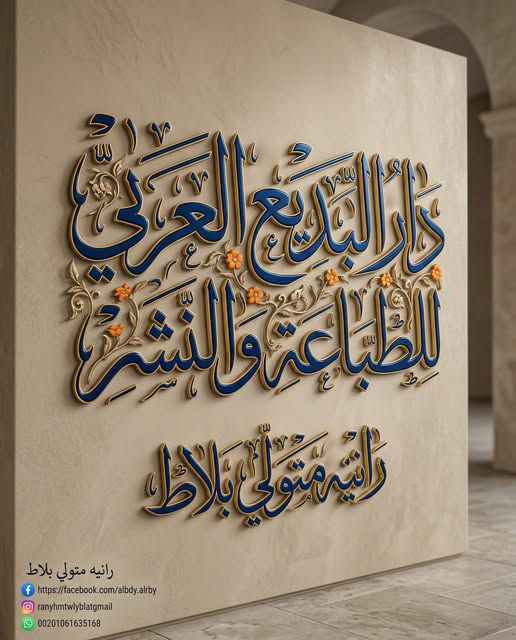 دَارُ البَدِيعِ العَرَبِيِّ
لِلطِّبَاعَةِ وَالنَّشْرِ
رانيه متولي بلاط
رانيه متولي بلاط
https://facebook.com/albdy.alrby
ranyhmtwlyblatgmail
00201061635168